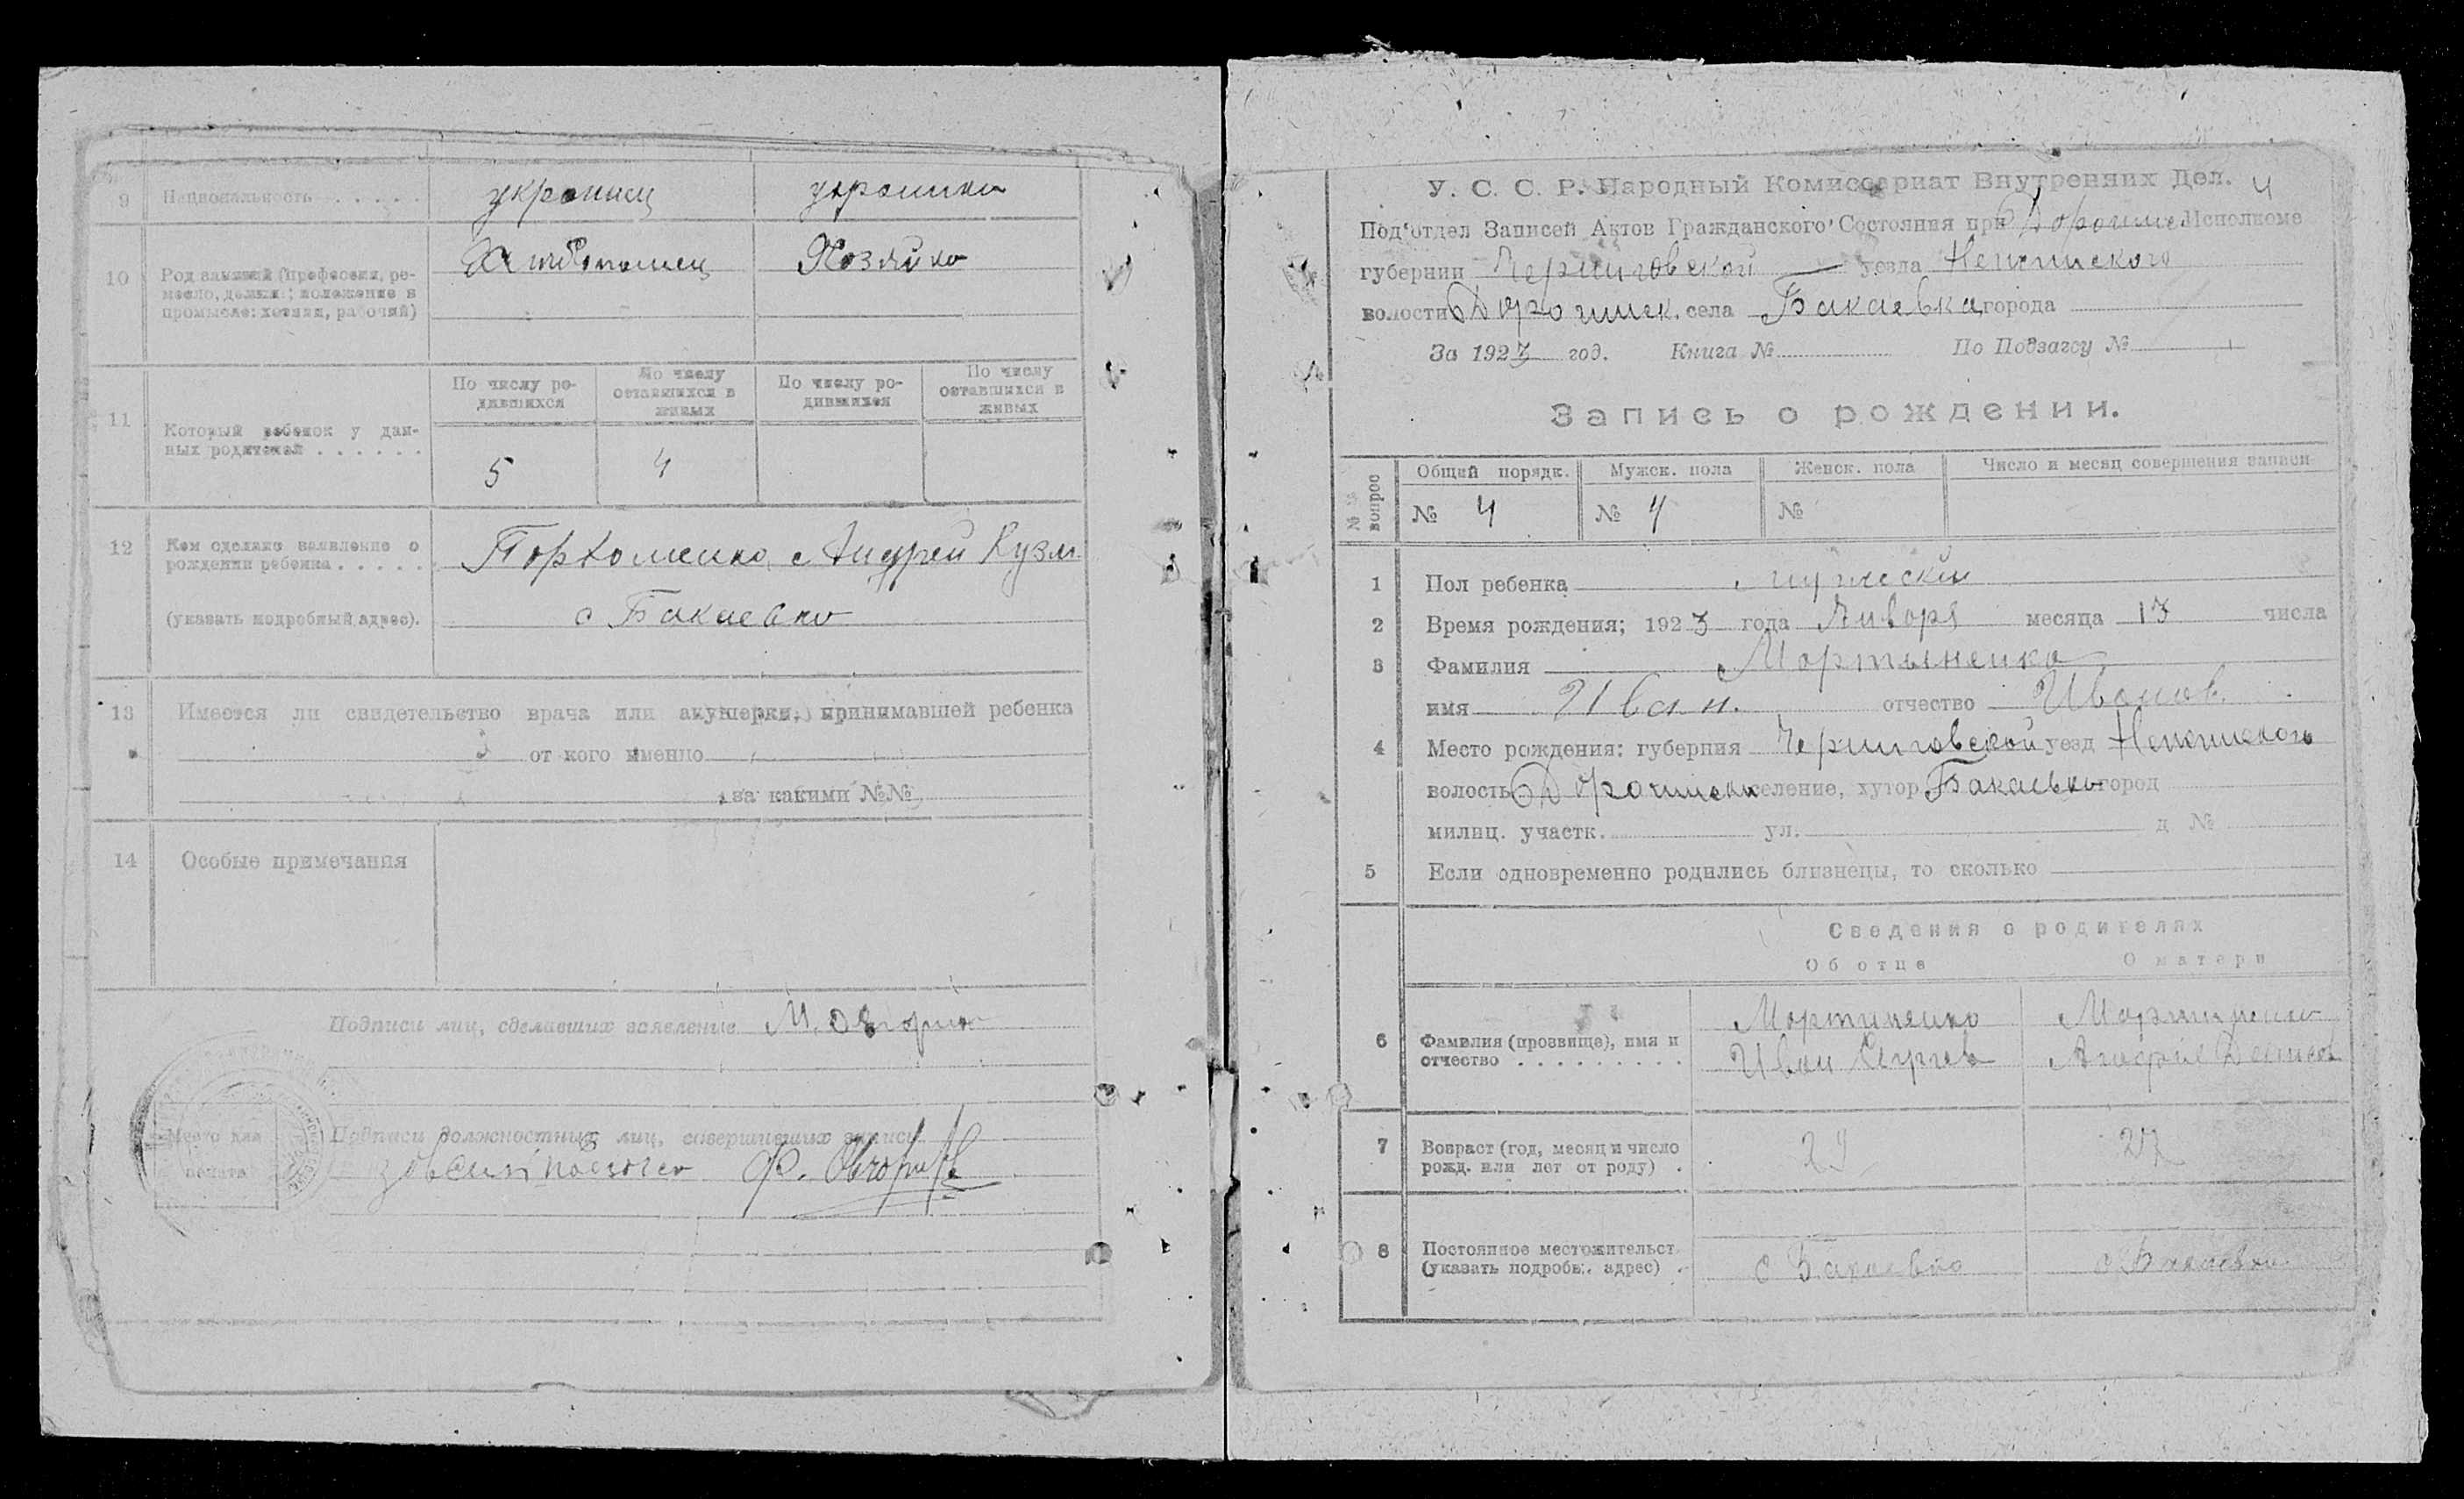 9 Национальность . . . . . украинец украинка
10 Род занятий (профессия, ремесло, должн.; положение в промысле: хозяин, рабочий) Хлебопашец Хозяйка
11 Который ребенок у данных родителей . . . . . .
По числу родившихся По числу оставшихся в живых По числу родившихся По числу оставшихся в живых
5 4
12 Кем сделано заявление о рождении ребенка . . . . . Пархоменко Андрей Кузм.
(указать подробный адрес). с Бакаевка
13 Имеется ли свидетельство врача или акушерки, принимавшей ребенка
от кого именно
за какими №№
14 Особые примечания
Подписи лиц, сделавших заявление
Место для печати
Подписи должностных лиц, совершивших запись
Ф.
4
У. С. С. Р. Народный Комиссариат Внутренних Дел.
Под'отдел Записей Актов Гражданского Состояния при Дорогинс. Исполкоме
губернии Черниговской уезда Нежинского
волости Дорогинск. села Бакаевка города
За 1923 год. Книга № По Подзагсу №
Запись о рождении.
№№ вопрос Общий порядк. Мужск. пола Женск. пола Число и месяц совершения записи
№ 4 № 4 №
1 Пол ребенка мужеский
2 Время рождения; 1923 года Января месяца 13 числа
3 Фамилия Мартыненко
имя Иван. отчество Иванов.
4 Место рождения: губерния Черниговской уезд Нежинского
волость Дорогинск селение, хутор Бакаевка город
милиц. участк. ул. д №
5 Если одновременно родились близнецы, то сколько
Сведения о родителях
Об отце О матери
6 Фамилия (прозвище), имя и отчество . . . . . . . . .
Мартиненко Мартиненко
Иван Сергеев
7 Возраст (год, месяц и число рожд. или лет от роду) . 27
8 Постоянное местожительст. (указать подробн. адрес) . с Бакаевка с Бакаевка